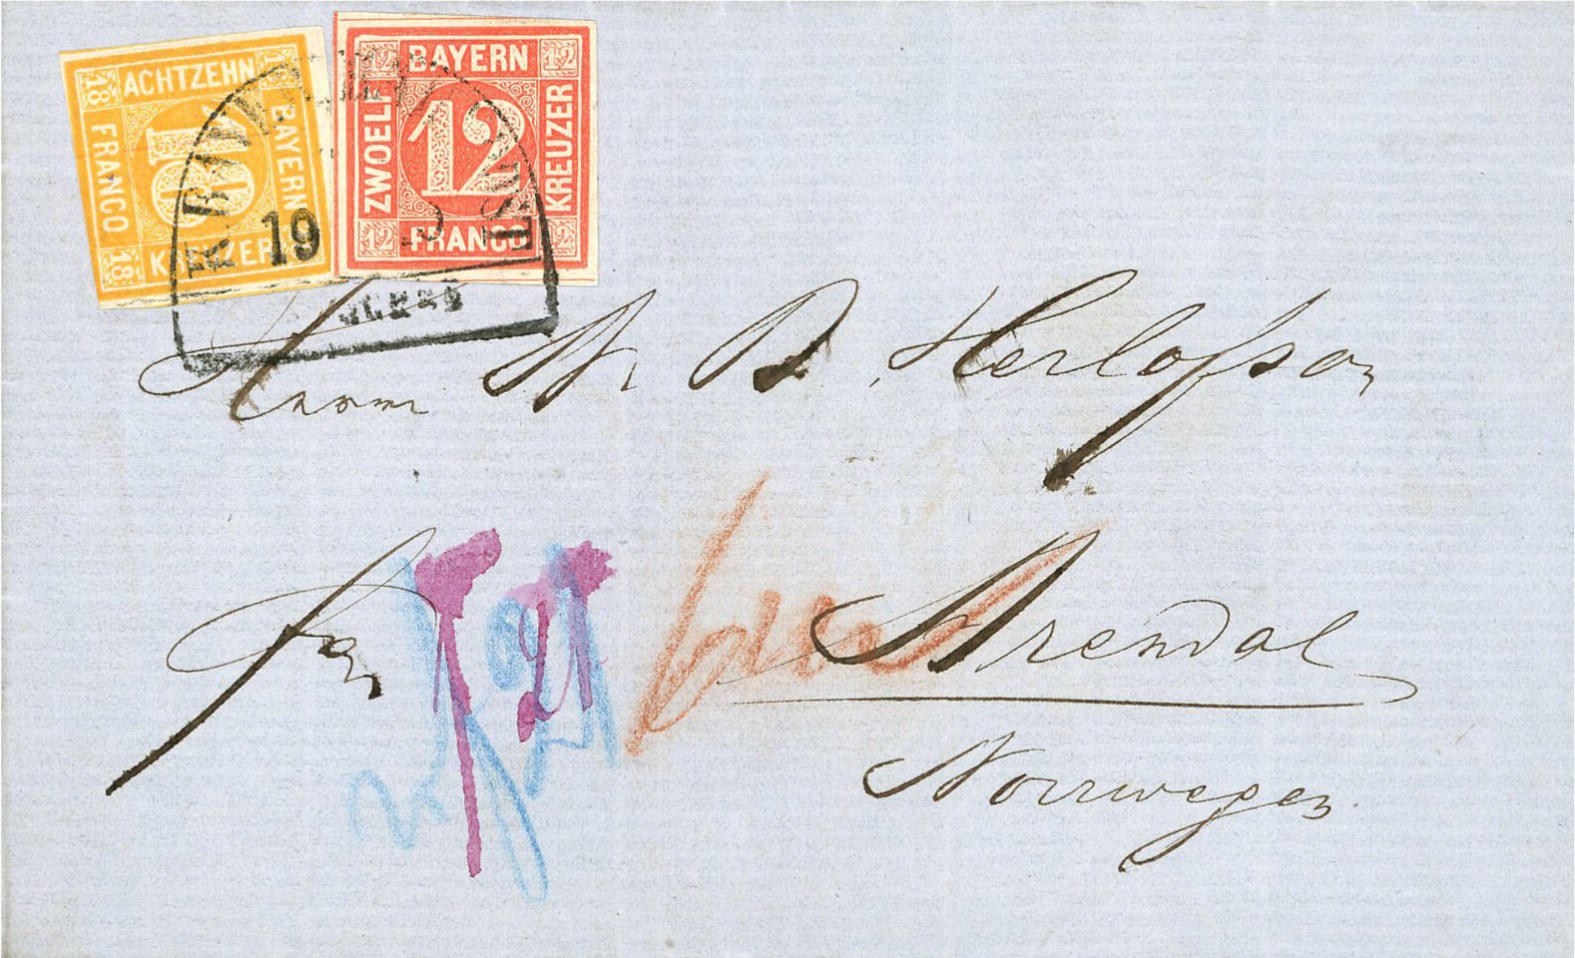 18 ACHTZEHN
BAYERN
FRANCO
18
KREUZER
18
12 BAYERN 12
ZWOELF
12
KREUZER
12 FRANCO 12
K. BAYER.
POST
19
Herrn N. D. Herlofson
fr
Arendal
Norwegen